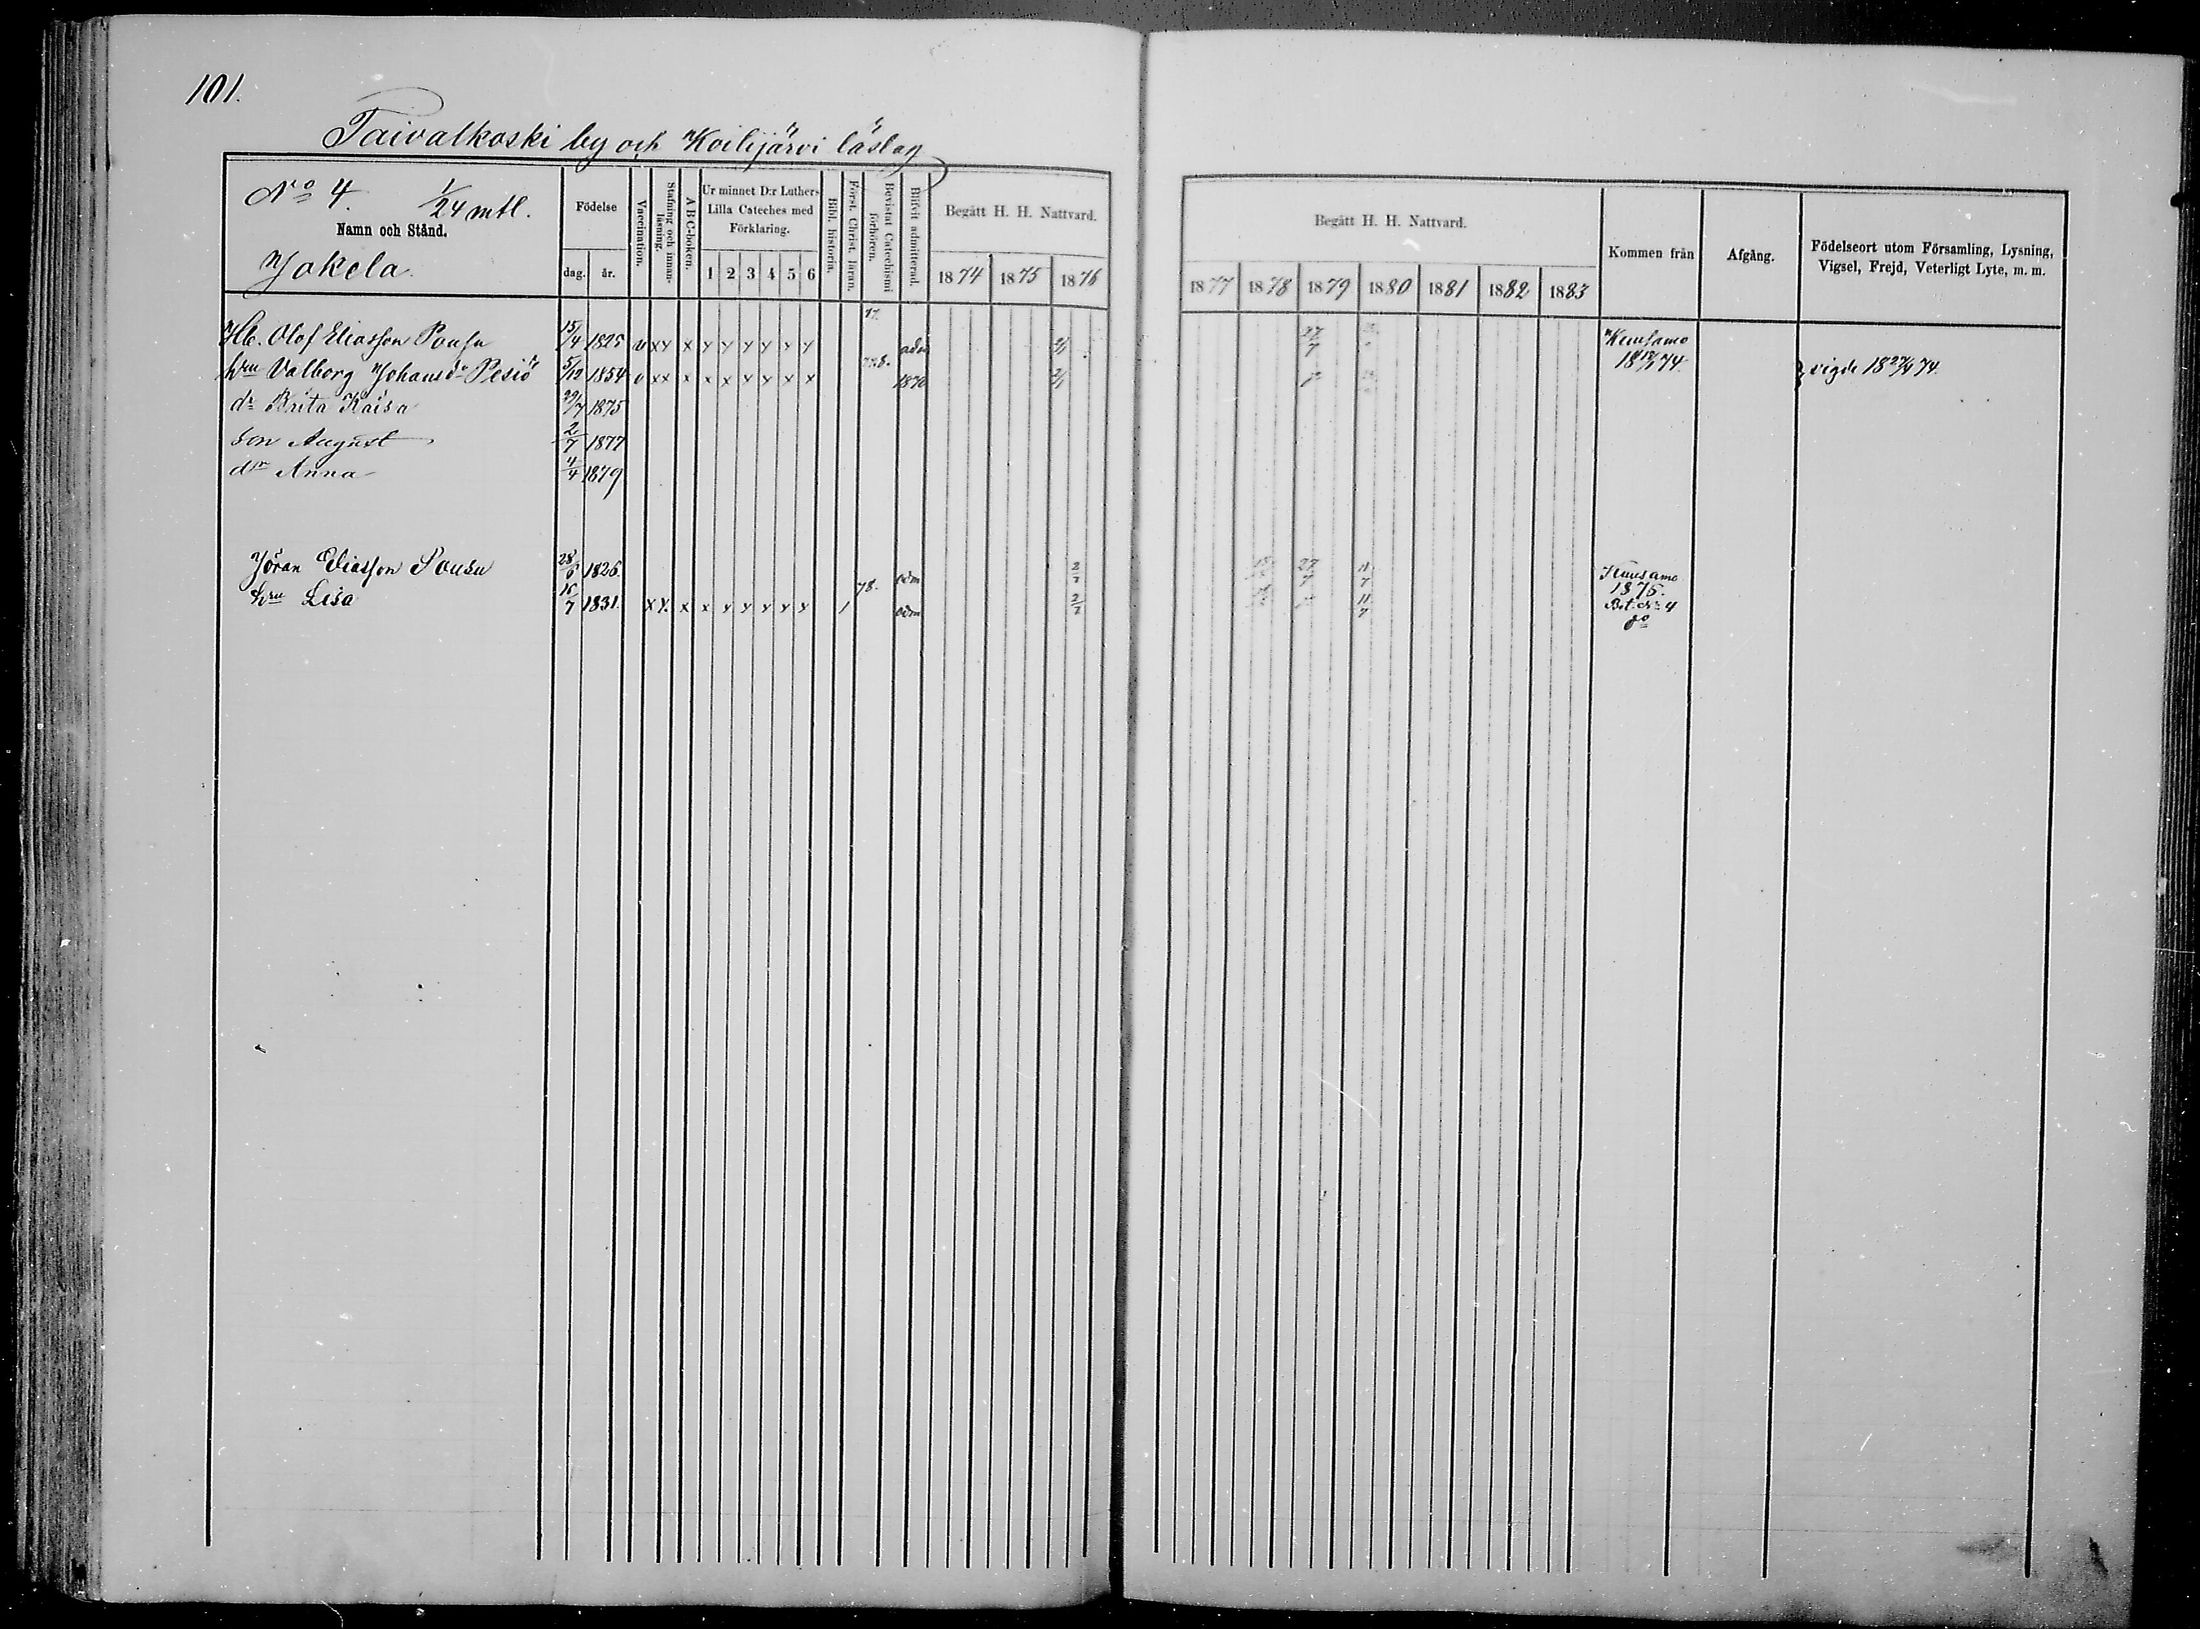 101.
Taivalkoski by och Koilijärvi läslag
No 4. 1/24 mtl.
Namn och Stånd.
Jokela.
Födelse
dag. år.
Vaccination.
Stafning och innan-läsning.
A B C-boken.
Ur minnet D:r Luthers
Lilla Cateches med
Förklaring.
1 2 3 4 5 6
Bibl. historia.
Först. Christ. läran.
Bevistat Catechismi förhören.
Blifvit admitterad.
Begått H. H. Nattvard.
1874 1875 1876
Begått H. H. Nattvard.
1877 1878 1879 1880 1881 1882 1883
Kommen från
Afgång.
Födelseort utom Församling, Lysning,
Vigsel, Frejd, Veterligt Lyte, m. m.
Hb. Olof Eliasson Pousu 15/4 1825 v x x x x x x x x x adm 2/7 27/7 Kuusamo
hru Valborg Johansdr Pesiö 5/12 1854 v x x x x x x x x x 1870 2/7 1874. vigde 18 27/4 74.
dr Brita Kaisa 29/7 1875
son August 2/7 1877
dr Anna 4/4 1879
Jöran Eliasson Pousu 28/6 1826. adm 2/7 27/7 11/7 Kuusamo
1875.
hru Lisa 16/7 1831. x x x x x x x x x 1 78. adm 2/7 11/7 Bet. No 4